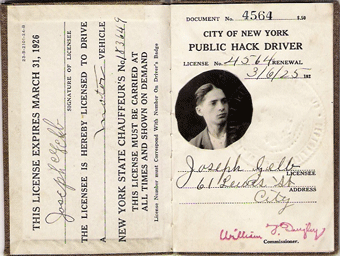 THIS LICENSE EXPIRES MARCH 31, 1926
Joseph Gelb
SIGNATURE OF LICENSEE
THE LICENSEE IS HEREBY LICENSED TO DRIVE
A motor VEHICLE
NEW YORK STATE CHAUFFEUR'S No. 183649
THIS LICENSE MUST BE CARRIED AT
ALL TIMES AND SHOWN ON DEMAND
License Number must Correspond With Number On Driver's Badge
DOCUMENT No. 4564 $.50
CITY OF NEW YORK
PUBLIC HACK DRIVER
LICENSE No. 4564 RENEWAL
3/6/25 192
Joseph Gelb
LICENSEE
61 Lewis St
ADDRESS
City
William F.
Commissioner.